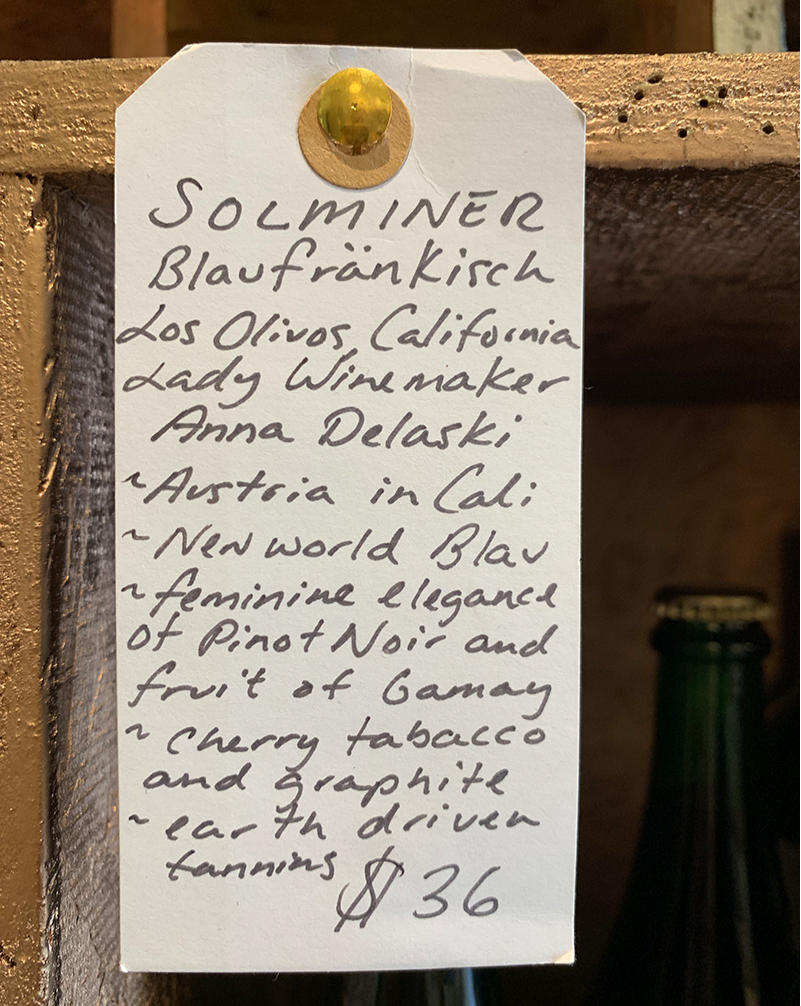 SOLMINER
Blaufränkisch
Los Olivos, California
Lady Winemaker
Anna Delaski
~Austria in Cali
~New world Blau
~feminine elegance
of Pinot Noir and
fruit of Gamay
~ cherry tabacco
and graphite
~earth driven
tannins $36